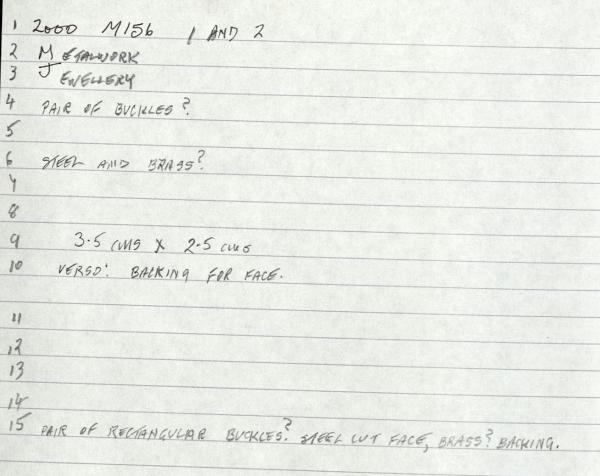 1 2000 M156 1 AND 2
2 METALWORK
3 JEWELLERY
4 PAIR OF BUCKLES?
5
6 STEEL AND BRASS?
7
8
9 3.5 CMS X 2.5 CMS
10 VERSO: BACKING FOR FACE.
11
12
13
14
15 PAIR OF RECTANGULAR BUCKLES? STEEL CUT FACE, BRASS? BACKING.